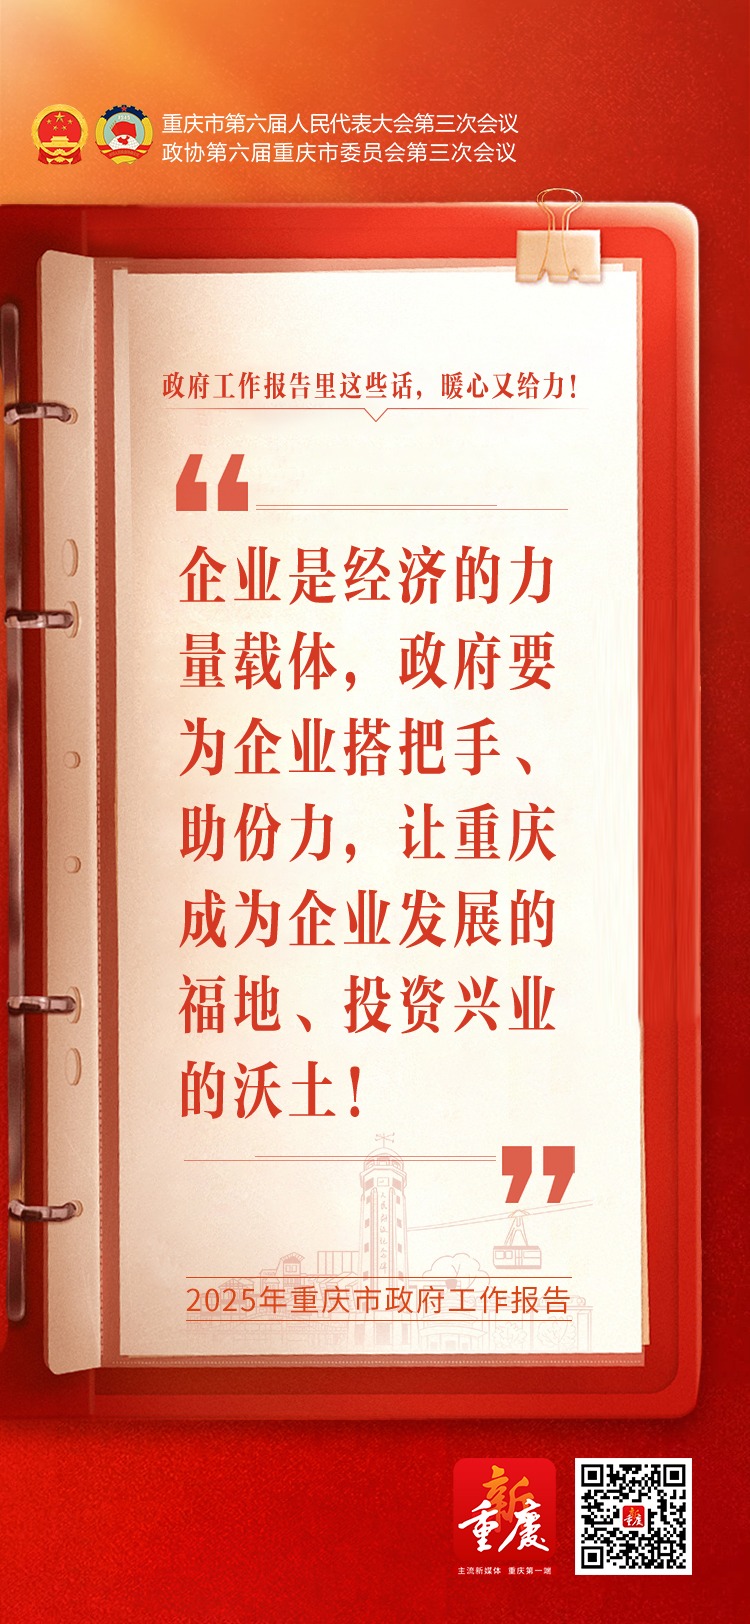 重庆市第六届人民代表大会第三次会议
政协第六届重庆市委员会第三次会议
政府工作报告里这些话，暖心又给力！
企业是经济的力
量载体，政府要
为企业搭把手、
助份力，让重庆
成为企业发展的
福地、投资兴业
的沃土！
人民解放纪念碑
2025年重庆市政府工作报告
新
重庆
主流新媒体 重庆第一端